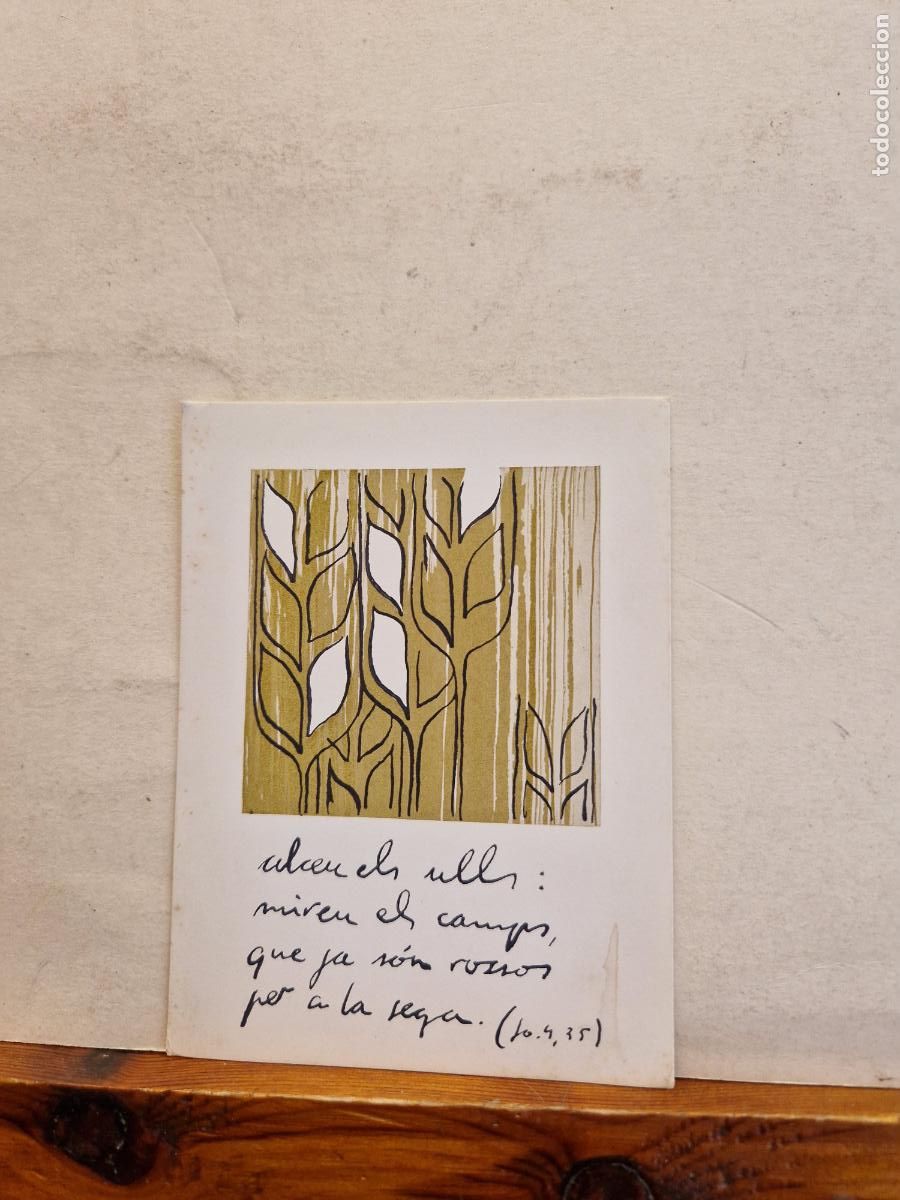 todocoleccion
alceu els ulls:
mireu els camps,
que ja són rossos
per a la sega. (Jo.4,35)